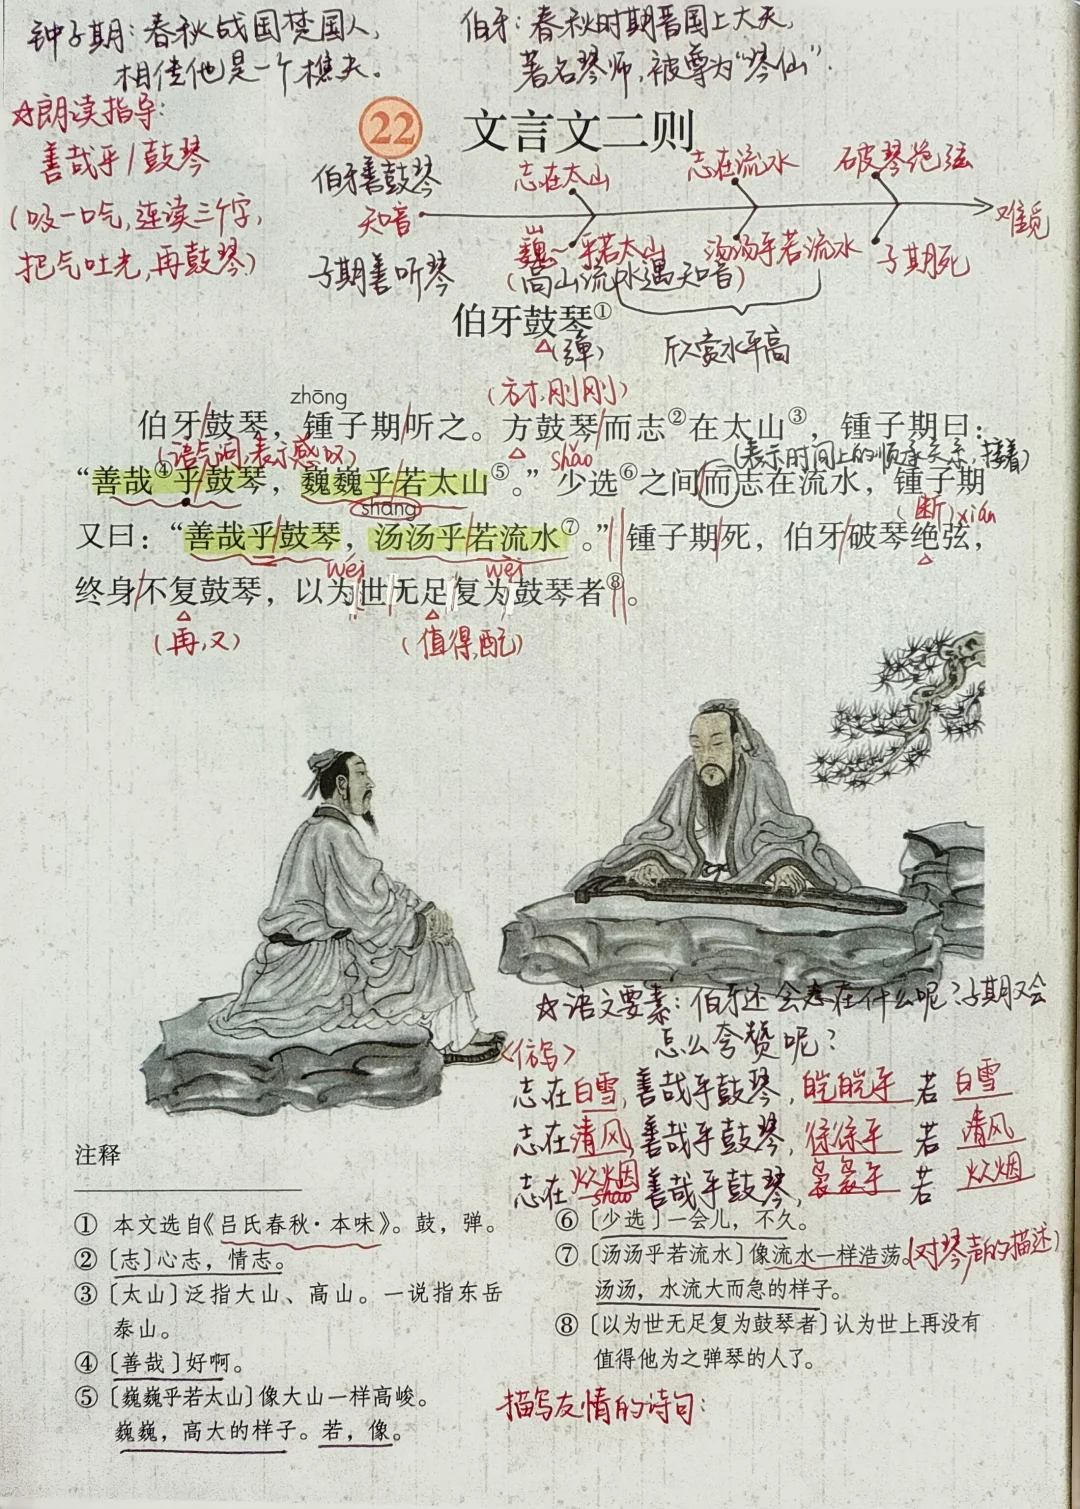 钟子期：春秋战国楚国人，
相传他是一个樵夫。
伯牙：春秋时期晋国上大夫，
著名琴师，被尊为“琴仙”.
☆朗读指导：
善哉乎/鼓琴
（吸一口气，连读三个字，
把气吐光，再鼓琴）
22 文言文二则
伯牙善鼓琴
知音
子期善听琴
志在太山 志在流水 破琴绝弦
巍~乎若太山 汤汤乎若流水 子期死
难觅
（高山流水遇知音）
伯牙鼓琴①
（弹） 欣赏水平高
（方才，刚刚）
zhōng
伯牙/鼓琴，锺子期/听之。方鼓琴/而志②在太山③，锺子期曰：
（语气词，表示感叹） shǎo （表示时间上的顺承关系，接着）
“善哉④乎/鼓琴，巍巍乎/若太山⑤。”少选⑥之间/而志在流水，锺子期
shāng （断） xián
又曰：“善哉乎/鼓琴，汤汤乎/若流水⑦。”‖锺子期/死，伯牙/破琴绝弦，
wéi wèi
终身/不复鼓琴，以为‖世无足‖复为‖鼓琴者⑧‖。
（再，又） （值得，配）
☆语文要素：伯牙还会志在什么呢？子期又会
怎么夸赞呢？
<仿写>
志在白雪，善哉乎鼓琴，皑皑乎若白雪
志在清风，善哉乎鼓琴，徐徐乎若清风
志在炊烟，善哉乎鼓琴，袅袅乎若炊烟
注释
① 本文选自《吕氏春秋·本味》。鼓，弹。
②〔志〕心志，情志。
③〔太山〕泛指大山、高山。一说指东岳
泰山。
④〔善哉〕好啊。
⑤〔巍巍乎若太山〕像大山一样高峻。
巍巍，高大的样子。若，像。
shǎo
⑥〔少选〕一会儿，不久。
⑦〔汤汤乎若流水〕像流水一样浩荡。（对琴声的描述）
汤汤，水流大而急的样子。
⑧〔以为世无足复为鼓琴者〕认为世上再没有
值得他为之弹琴的人了。
描写友情的诗句：